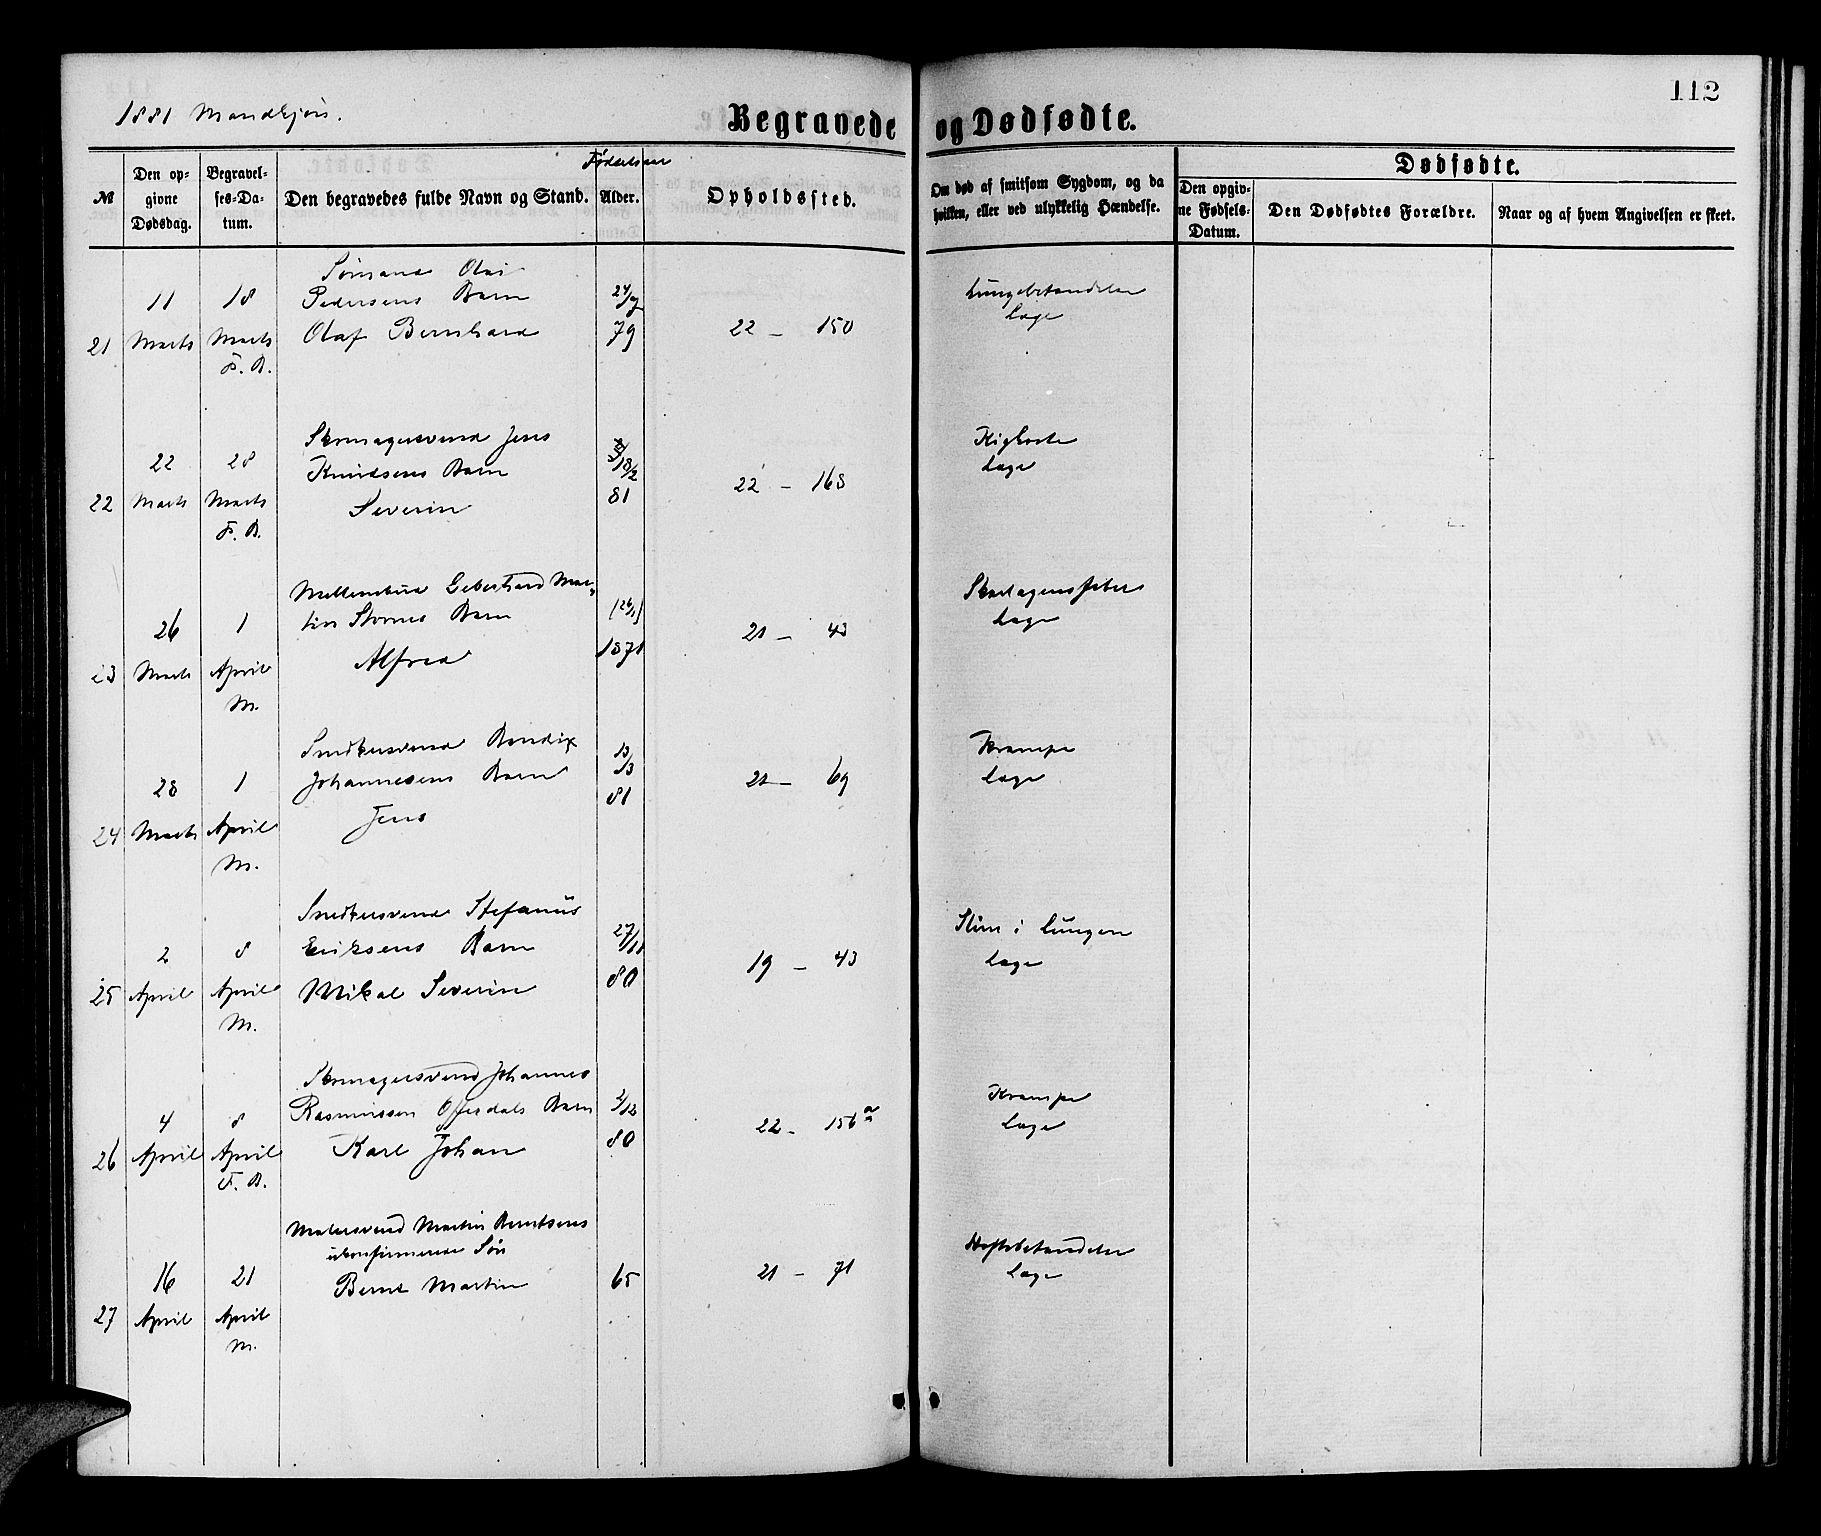 112
1881 Mandkjøn.
Begravede og Dødfødte.
№
Den opgivne Dødsdag.
Begravelses-Datum.
Den begravedes fulde Navn og Stand.
Fødselsaar
Alder.
Opholdssted.
Om død af smitsom Sygdom, og da hvilken, eller ved ulykkelig Hændelse.
Dødfødte.
Den opgivne Fødsels-Datum.
Den Dødfødtes Forældre.
Naar og af hvem Angivelsen er skeet.
21
11 Marts
18 Marts F. B.
Sømand Olai
Pedersens Barn
Olaf Bernhard
79
22 – 150
Lungebetændelse
Læge
22
22 Marts
28 Marts F. B.
Skomagersvend Jens
Knudsens Barn
Severin
18/2
81
22 – 168
Kighoste
Læge
23
26 Marts
1 April M.
Gebethard Mar-
tin Barn
Alfred
(26/1)
1871
21 – 43
Skarlagensfeber
Læge
24
28 Marts
1 April M.
Snedkersvend Bendix
Johannesens Barn
Jens
13/3
81
21 – 69
Krampe
Læge
25
2 April
8 April M.
Snedkersvend Stefanus
Eriksens Barn
Mikal Severin
27/11
80
19 – 43
Slim i Lungen
Læge
26
4 April
8 April F. B.
Skomagersvend Johannes
Rasmussen Barn
Karl Johan
2/12
80
22 – 156 a
Krampe
Læge
27
16 April
21 April M.
Malersvend Martin Berntsens
ukonfirmerede Søn
Bernt Martin
65
21 – 71
Hoftebetændelse
Læge